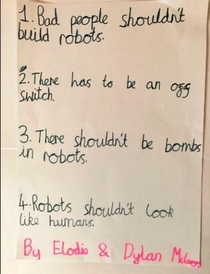 1. Bad people shouldn't
build robots.
2. There has to be an ogg
switch.
3. There shouldn't be bombs
in robots.
4. Robots shouldn't look
like humans.
By Elodie & Dylan